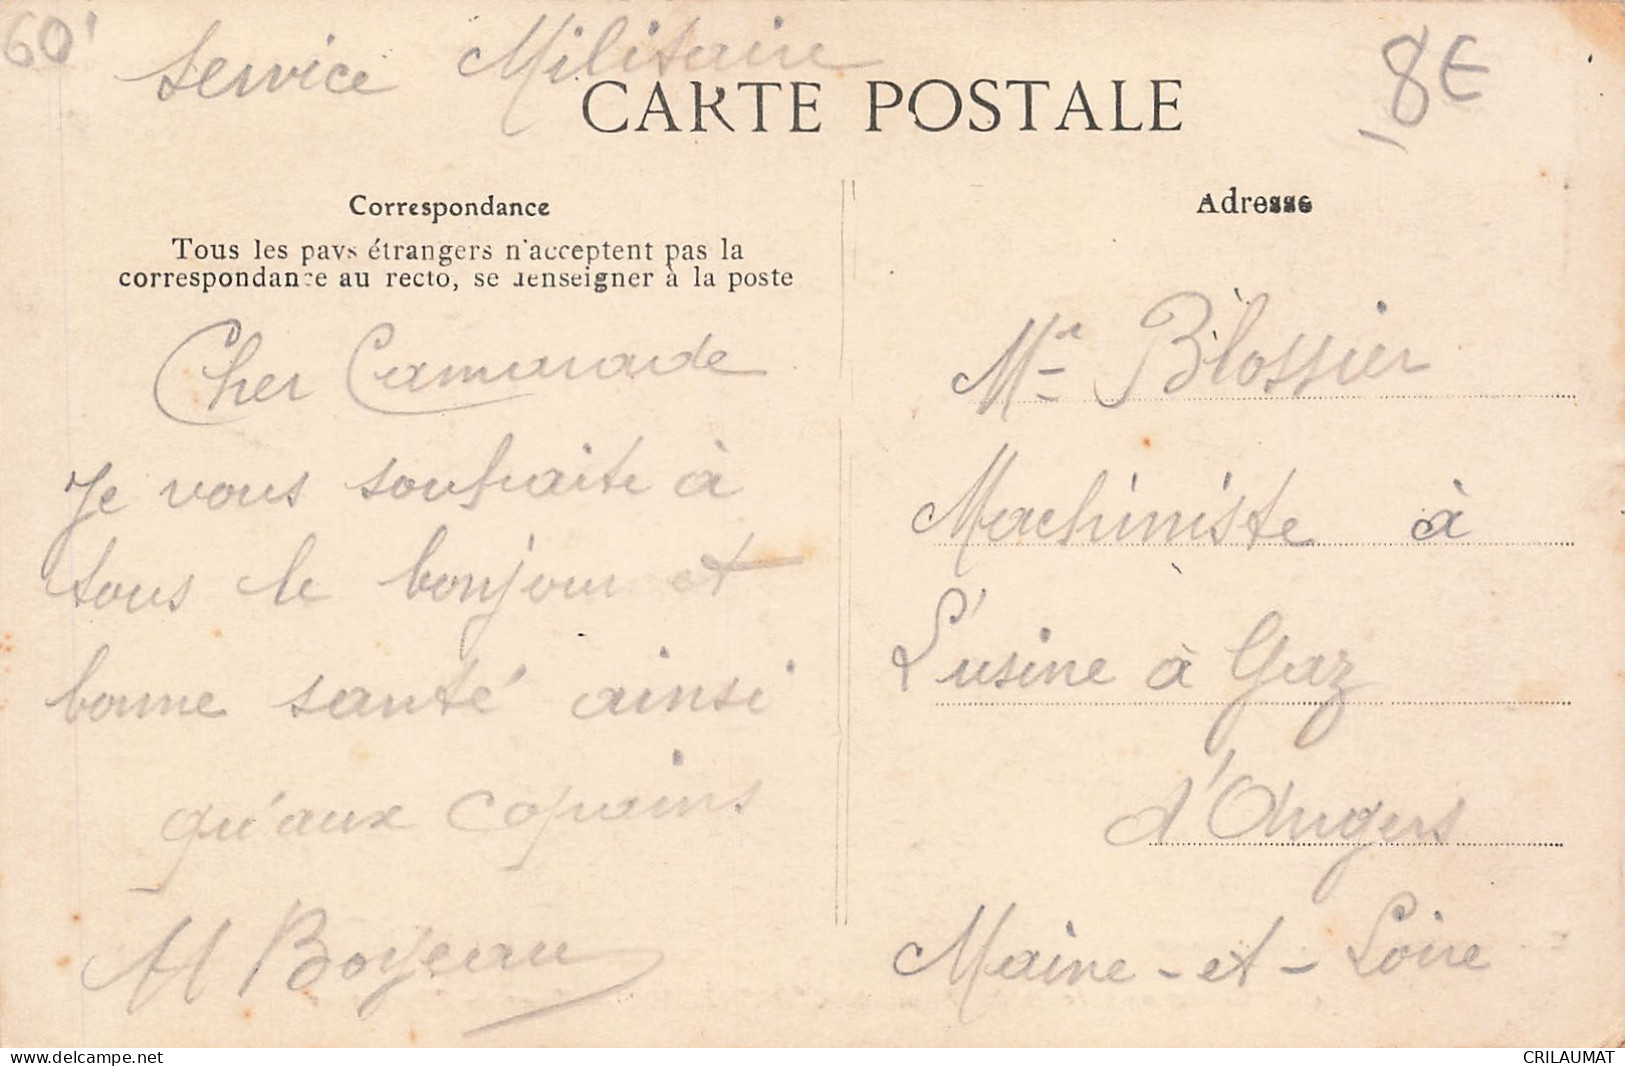 60'
Service Militaire
8€
CARTE POSTALE
Correspondance
Tous les pays étrangers n'acceptent pas la
correspondance au recto, se renseigner à la poste
Cher Camarade
Je vous souhaite à
tous le bonjour et
bonne santé ainsi
qu'aux copains
H Boyeau
Adresse
Mr Blossier
Machiniste à
L'usine à Gaz
d'Angers
Maine-et-Loire
www.delcampe.net
CRILAUMAT